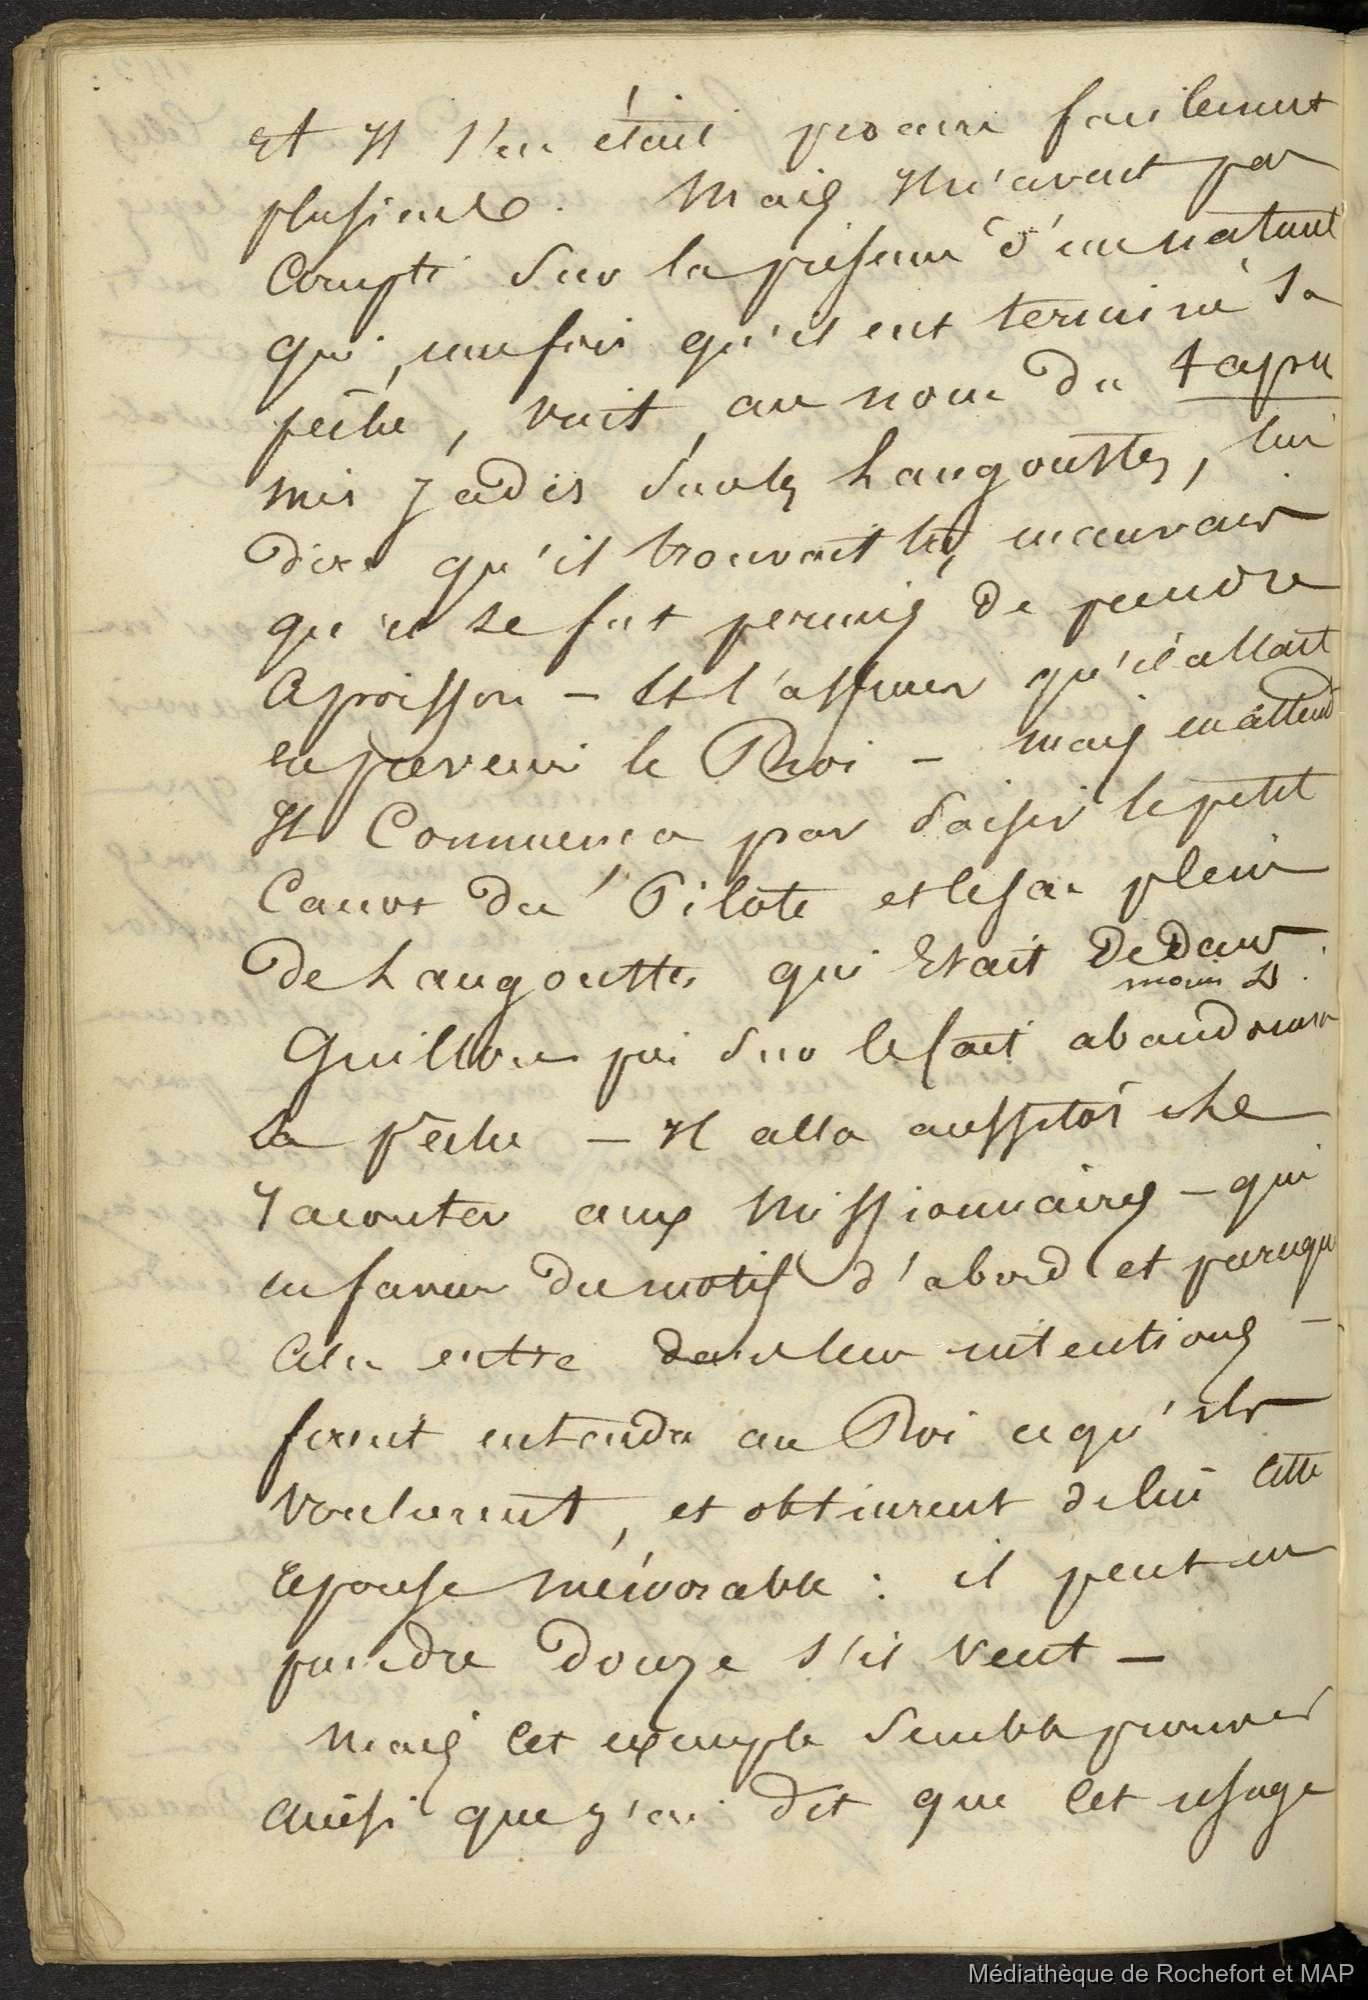 Et Il s'en était procuré facilement
plusieurs. Mais Il n'avait pas
Compté sur la présence d'un naturel
qui, une fois qu'il eut terminé sa
pêche, vint, au nom du tapu
mis jadis sur les Langoustes, lui
dire qu'il trouvait très mauvais
qu'il se fut permis de prendre
ce poisson — Et l'assurer qu'il allait
en prévenir le Roi — mais en attend
Il Commença par saisir le petit
Canot du Pilote et le sac plein
de Langoustes qui Etait Dedans.
mons D
Guillou fut sur le fait abandonner
sa pêche — Il alla aussitôt
raconter aux Missionnaires — qui
en faveur du motif d'abord et parceque
Cela entre dans leur intentions —
firent entendre au Roi ce qu'ils
voulurent, et obtinrent de lui cette
réponse mémorable : il peut en
prendre douze s'il veut —
Mais Cet exemple semble prouver
ainsi que j'ai dit que Cet usage
Médiathèque de Rochefort et MAP